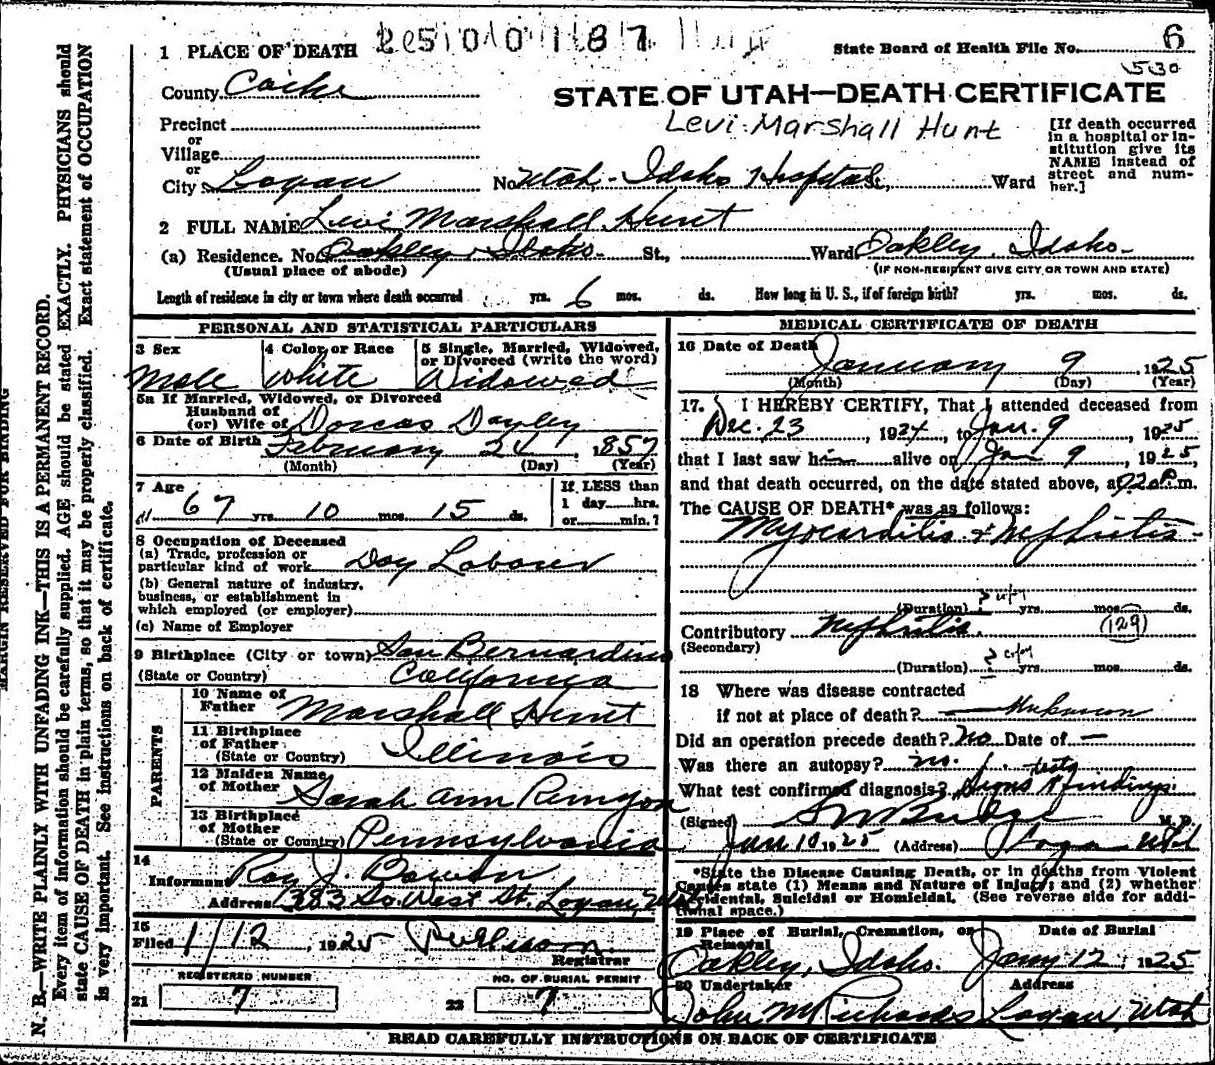 1 PLACE OF DEATH
State Board of Health File No. 6
530
County Cache
STATE OF UTAH—DEATH CERTIFICATE
Levi Marshall Hunt
Precinct
or
Village
or
City Logan
No. Utah-Idaho Hospital St., Ward
[If death occurred
in a hospital or in-
stitution give its
NAME instead of
street and num-
ber.]
2 FULL NAME Levi Marshall Hunt
(a) Residence. No. Oakley, Idaho- St., Ward Oakley, Idaho-
(Usual place of abode) (IF NON-RESIDENT GIVE CITY OR TOWN AND STATE)
Length of residence in city or town where death occurred yrs. 6 mos. ds. How long in U. S., if of foreign birth? yrs. mos. ds.
PERSONAL AND STATISTICAL PARTICULARS
3 Sex
Male
4 Color or Race
White
5 Single, Married, Widowed,
or Divorced (write the word)
Widowed
5a If Married, Widowed, or Divorced
Husband of
(or) Wife of Dorcas Dayley
6 Date of Birth February 24, 1857
(Month) (Day) (Year)
7 Age
67 yrs. 10 mos. 15 ds.
If LESS than
1 day hrs.
or min.?
8 Occupation of Deceased
(a) Trade, profession or
particular kind of work Day Laborer
(b) General nature of industry,
business, or establishment in
which employed (or employer)
(c) Name of Employer
9 Birthplace (City or town) San Bernardino
(State or Country) California
PARENTS
10 Name of
Father Marshall Hunt
11 Birthplace
of Father
(State or Country) Illinois
12 Maiden Name
of Mother Sarah Ann Runyon
13 Birthplace
of Mother
(State or Country) Pennsylvania
14
Informant Roy J. Bowen
Address 383 So. West St. Logan, Utah
15
Filed 1/12, 1925
Registrar
REGISTERED NUMBER
21 7
NO. OF BURIAL PERMIT
22 7
MEDICAL CERTIFICATE OF DEATH
16 Date of Death
January 9, 1925
(Month) (Day) (Year)
17. I HEREBY CERTIFY, That I attended deceased from
Dec. 23, 1924, to Jan. 9, 1925
that I last saw him alive on Jan 9, 1925,
and that death occurred, on the date stated above, at 720 P.m.
The CAUSE OF DEATH* was as follows:
Myocarditis & Nephritis-
(Duration) yrs. mos. ds.
Contributory Nephritis. (129)
(Secondary)
(Duration) yrs. mos. ds.
18 Where was disease contracted
if not at place of death? Unknown
Did an operation precede death? No Date of —
Was there an autopsy? no.
What test confirmed diagnosis? Signs & findings tests
(Signed) M. D.
Jan 10 1925 (Address) Logan Utah
*State the Disease Causing Death, or in deaths from Violent
Causes state (1) Means and Nature of Injury; and (2) whether
Accidental, Suicidal or Homicidal. (See reverse side for addi-
tional space.)
19 Place of Burial, Cremation, or
Removal
Oakley, Idaho.
Date of Burial
Jany 12, 1925
20 Undertaker
John M Richards
Address
Logan, Utah
READ CAREFULLY INSTRUCTIONS ON BACK OF CERTIFICATE
MARGIN RESERVED FOR BINDING
N. B.—WRITE PLAINLY WITH UNFADING INK—THIS IS A PERMANENT RECORD.
Every item of information should be carefully supplied. AGE should be stated EXACTLY. PHYSICIANS should
state CAUSE OF DEATH in plain terms, so that it may be properly classified. Exact statement of OCCUPATION
is very important. See instructions on back of certificate.